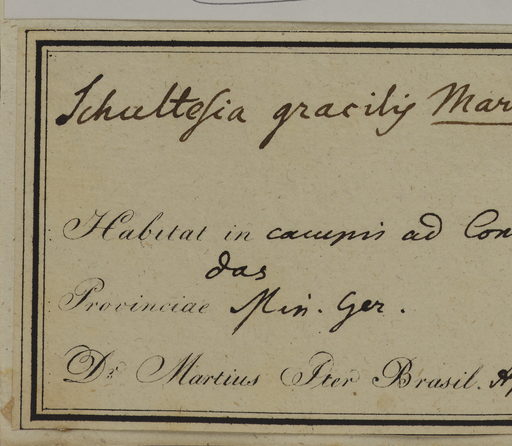 Schultesia gracilis Mar
Habitat in campis ad Con
das
Provinciae Min. Ger.
Dr. Martius Iter Brasil.